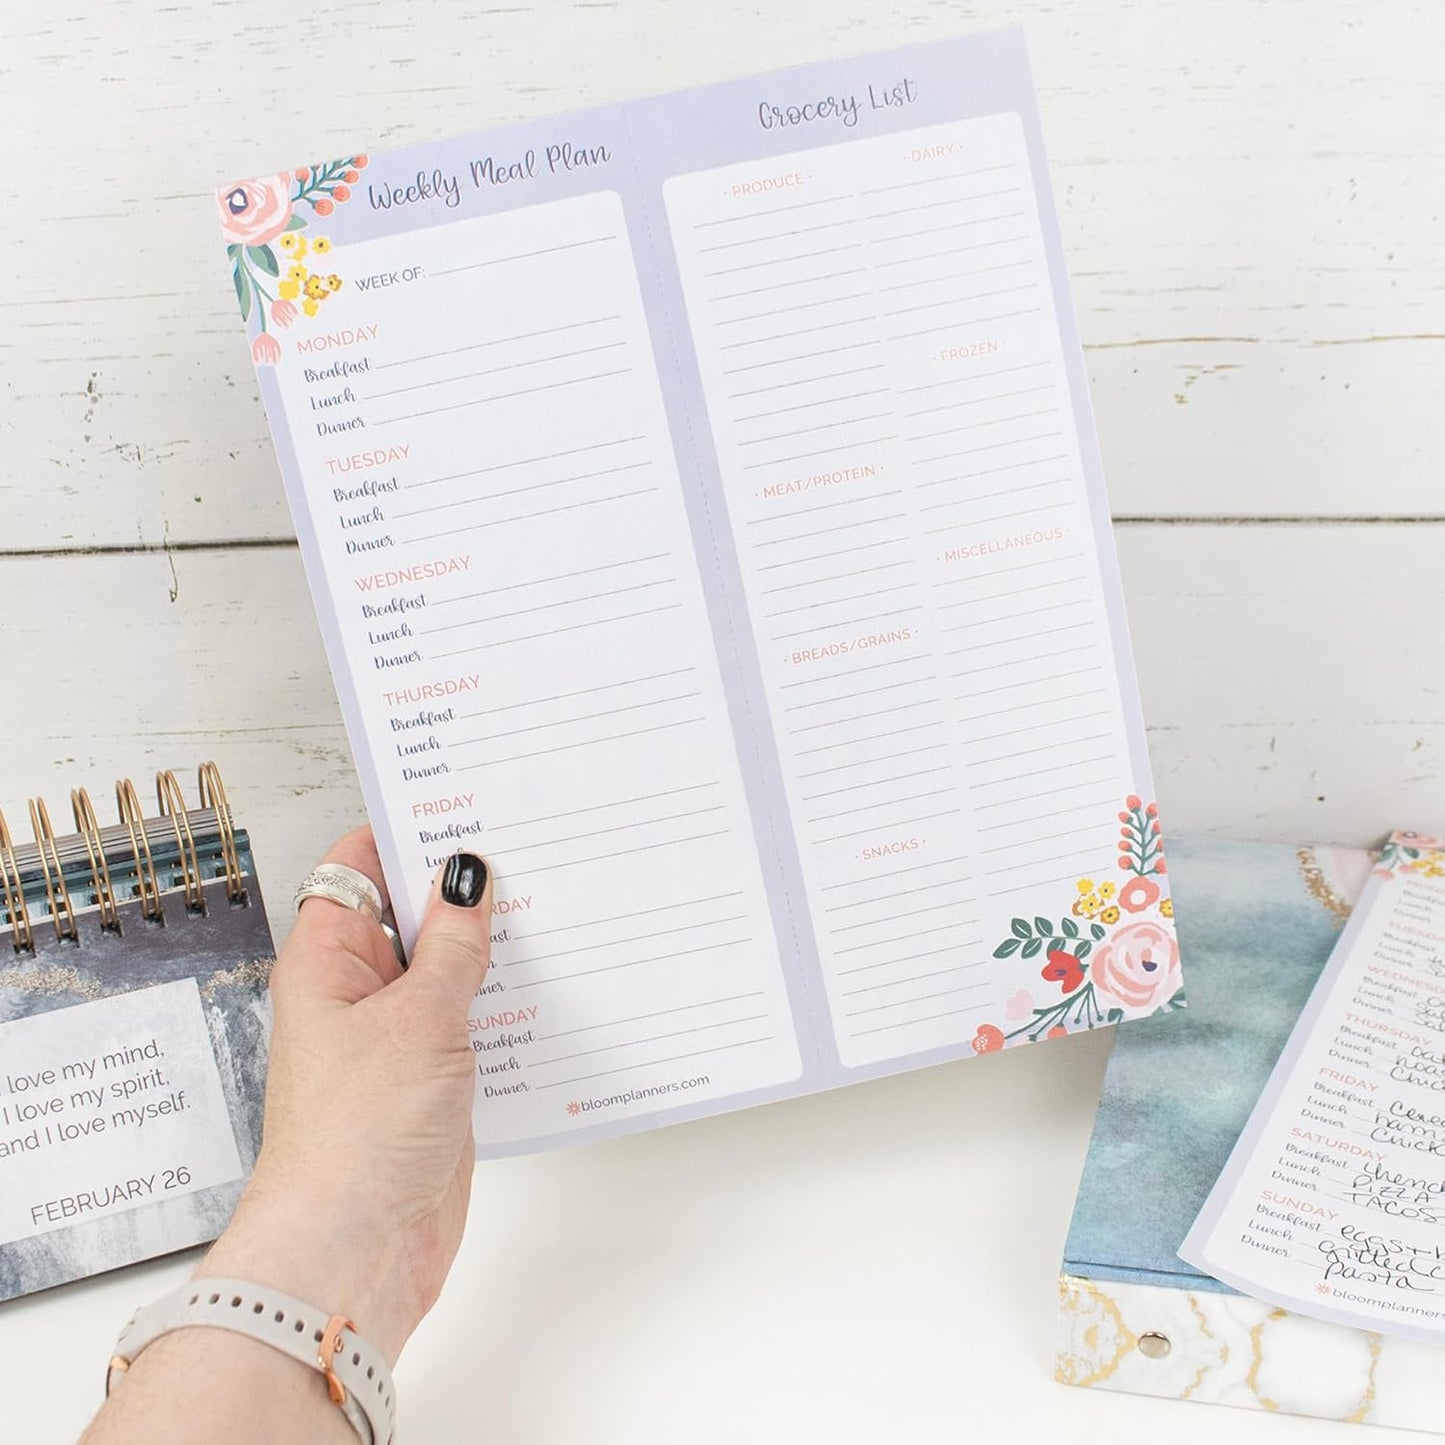 Weekly Meal Plan
WEEK OF:
MONDAY
Breakfast
Lunch
Dinner
TUESDAY
Breakfast
Lunch
Dinner
WEDNESDAY
Breakfast
Lunch
Dinner
THURSDAY
Breakfast
Lunch
Dinner
FRIDAY
Breakfast
SUNDAY
Breakfast
Lunch
Dinner
bloomplanners.com
Grocery List
• PRODUCE •
• DAIRY •
• FROZEN •
• MEAT/PROTEIN •
• MISCELLANEOUS •
• BREADS/GRAINS •
• SNACKS •
love my mind,
I love my spirit,
and I love myself.
FEBRUARY 26
MONDAY
Breakfast
Lunch
Dinner
TUESDAY
Breakfast
Lunch
Dinner
Breakfast
Lunch
Dinner
THURSDAY
Breakfast
Lunch
Dinner
FRIDAY
Breakfast
Lunch
Dinner
SATURDAY
Breakfast
Lunch PIZZA
Dinner TACOS
SUNDAY
Breakfast eggs +
Lunch grilled
Dinner pasta
bloomplanners